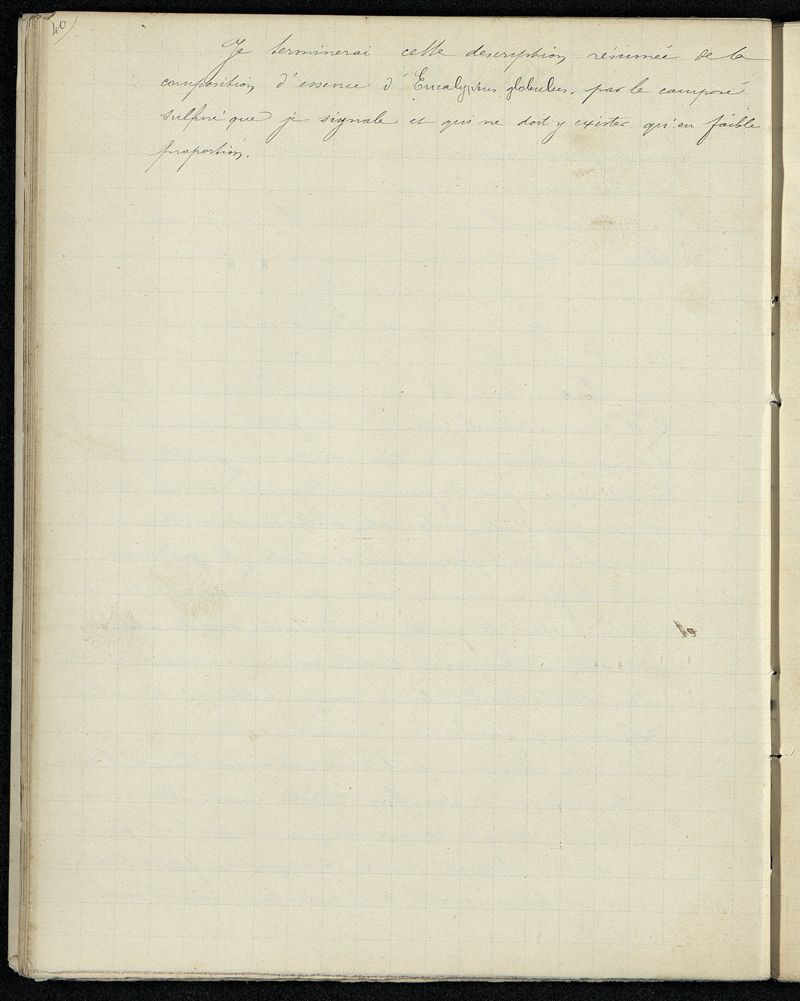 40)
Je terminerai cette description résumée de la
composition d'essence d'Eucalyptus globulus, par le composé
sulfuré que je signale et qui ne doit y exister qu'en faible
proportion.